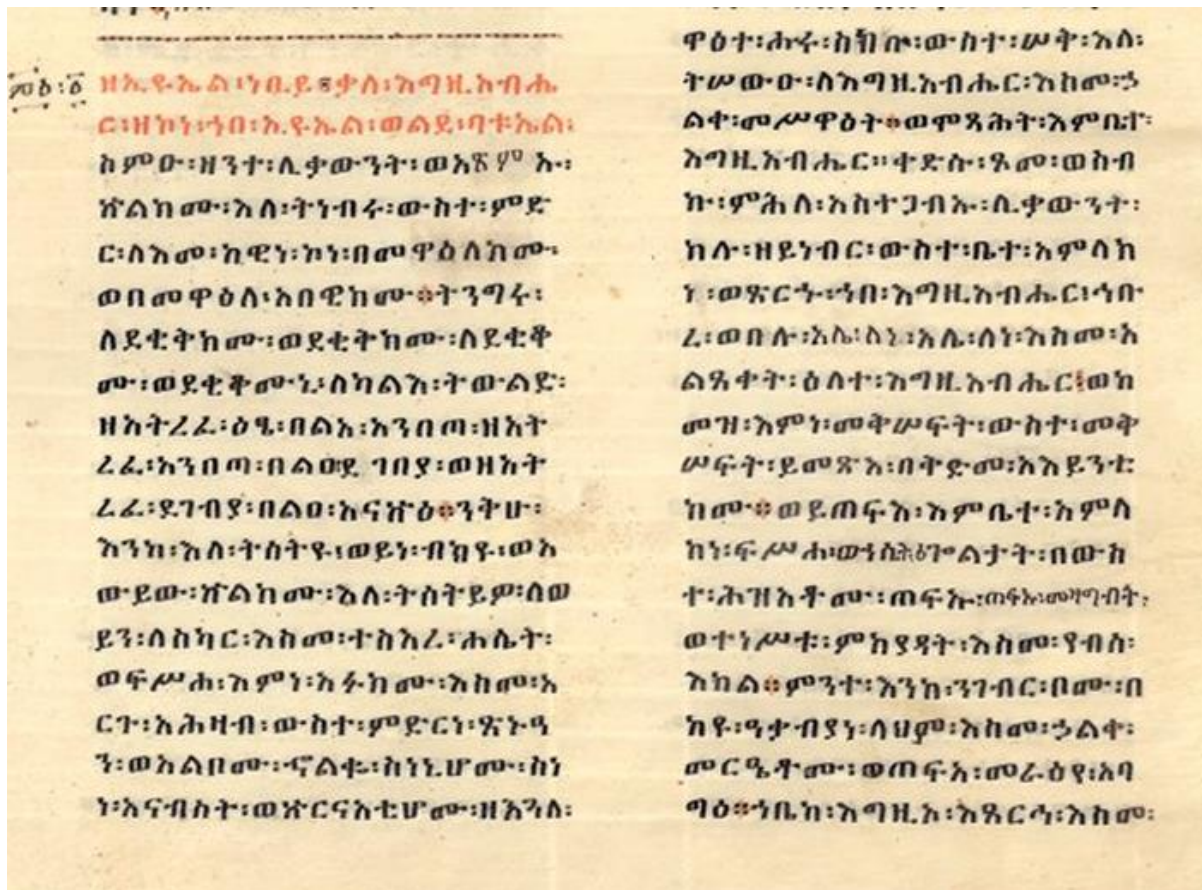 ምዕ፡፩
ዘኢዩኤል፡ነቢይ፡ቃለ፡እግዚአብሔ
ር፡ዘኮነ፡ኀበ፡ኢዩኤል፡ወልደ፡ባቱኤል፡
ስምዑ፡ዘንተ፡ሊቃውንት፡ወአፅምኡ፡
ኵልክሙ፡እለ፡ትነብሩ፡ውስተ፡ምድ
ር፡ለእመ፡ከዊነ፡ኮነ፡በመዋዕለክሙ፡
ወበመዋዕለ፡አበዊክሙ፨ትንግሩ፡
ለደቂትክሙ፡ወደቂትክሙ፡ለደቂቆ
ሙ፡ወደቂቆሙኒ፡ለካልእ፡ትውልድ፡
ዘአትረፈ፡ዕፄ፡በልአ፡አንበጣ፡ዘአት
ረፈ፡አንበጣ፡በልዐ፡ደገብያ፡ወዘአት
ረፈ፡ደገብያ፡በልዐ፡አናኵዕ፨ንትሁ፡
እንከ፡እለ፡ትስትዩ፡ወይነ፡ብክዩ፡ወአ
ውይው፡ኵልክሙ፡እለ፡ትስትይዎ፡ለወ
ይን፡ለስካር፡እስመ፡ተስእረ፡ሐሴት፡
ወፍሥሐ፡እምነ፡አፉክሙ፡እስመ፡አ
ርጉ፡አሕዛብ፡ውስተ፡ምድርነ፡ጽኑዓ
ን፡ወአልቦሙ፡ኆልቈ፡ስነኒሆሙ፡ስነ
ነ፡አናብስት፡ወጽርናአቲሆሙ፡ዘእጓለ፡
ዋዕተ፡ሑሩ፡ስክቡ፡ውስተ፡ሠቅ፡እለ፡
ትሠውዑ፡ለእግዚአብሔር፡እስመ፡ኃ
ልቀ፡መሥዋዕት፨ወሞጻሕት፡እምቤተ፡
እግዚአብሔር።ቀድሱ፡ጾመ፡ወስብ
ኩ፡ምሕለ፡አስተጋብኡ፡ሊቃውንት፡
ኩሉ፡ዘይነብር፡ውስተ፡ቤተ፡አምላክ
ነ፡ወጽርኁ፡ኀበ፡እግዚአብሔር፡ኅቡ
ረ፡ወበሉ፡አሌ፡ለነ፡አሌ፡ለነ፡እስመ፡አ
ልጸቀት፡ዕለተ፡እግዚአብሔር፡ወከ
መዝ፡እምነ፡መቅሠፍት፡ውስተ፡መቅ
ሠፍት፡ይመጽእ፡በቅድመ፡አእይንቲ
ክሙ፨ወይጠፍእ፡እምቤተ፡አምላ
ክነ፡ፍሥሐ፡ወኀሴት፡ጐልታት፡በውስ
ተ፡ሕዝአቶሙ፡ጠፍኡ፡ጠፍኡ፡መዛግብት፡
ወተነሥቱ፡ምክያዳት፡እስመ፡የብሰ፡
እክል፨ምንተ፡እንከ፡ንገብር፡ቦሙ፡በ
ከዩ፡ዓቃብያነ፡ላህም፡እስመ፡ኃልቀ፡
መርዔቶሙ፡ወጠፍአ፡መራዕየ፡አባ
ግዕ፨ኀቤከ፡እግዚኦ፡እጸርሕ፡እስመ፡